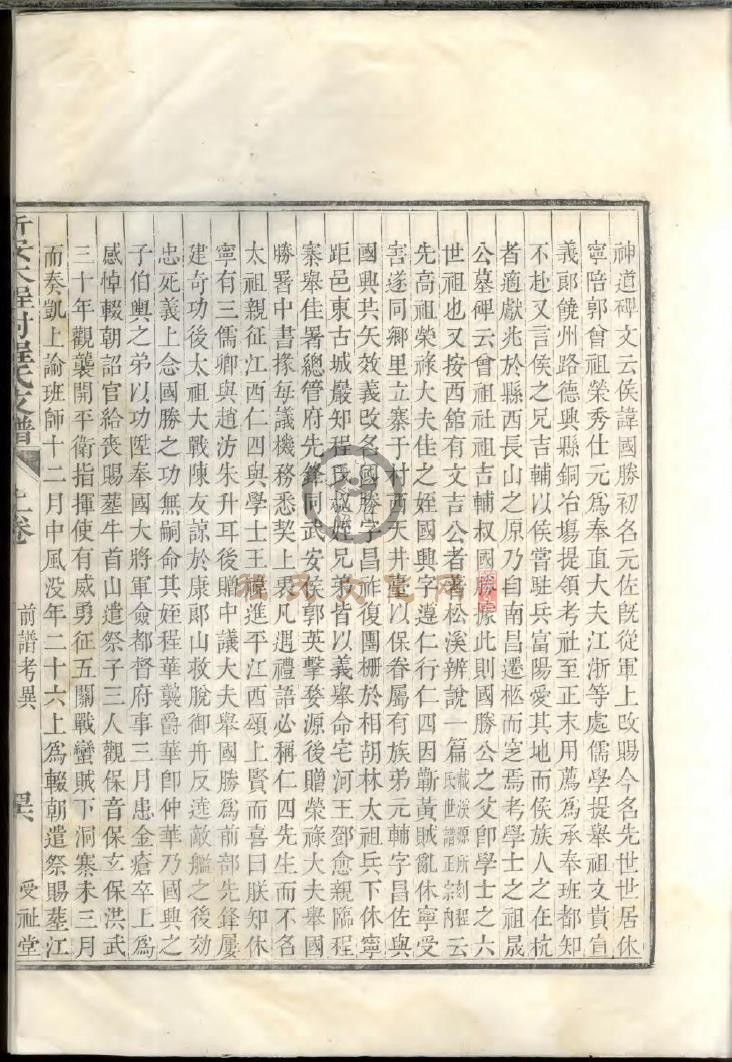 神道碑文云侯諱國勝初名元佐旣從軍上改賜今名先世世居休
寧陪郭曾祖榮秀仕元爲奉直大夫江浙等處儒學提舉祖文貴宣
義郎饒州路德興縣銅冶塲提領考社至正末用薦爲承奉班都知
不赴又言侯之兄吉輔以侯嘗駐兵富陽愛其地而侯族人之在杭
者適獻兆於縣西長山之原乃自南昌遷柩而窆焉考學士之祖晟
公墓碑云曾祖社祖吉輔叔國勝據此則國勝公之父卽學士之六
世祖也又按西舘有文吉公者著松溪辨說一篇載溪源所刻程氏世譜正宗內云
先高祖榮祿大夫佳之姪國興字遵仁行仁四因蘄黃賊亂休寧受
害遂同鄉里立寨于村西天井薹以保眷屬有族弟元輔字昌佐與
國興共矢效義改名國勝字昌祚復團栅於相胡林太祖兵下休寧
距邑東古城巖知程氏叔姪兄弟皆以義舉命宅河王鄧愈親臨程
寨舉佳署總管府先鋒同武安侯郭英擊婺源後贈榮祿大夫舉國
勝署中書掾每議機務悉契上衷凡遇禮語必稱仁四先生而不名
太祖親征江西仁四與學士王禕進平江西頌上賢而喜曰朕知休
寧有三儒卿與趙汸朱升耳後贈中議大夫舉國勝爲前部先鋒屢
建奇功後太祖大戰陳友諒於康郞山救脫御舟反遶敵艦之後効
忠死義上念國勝之功無嗣命其姪程華襲爵華卽仲華乃國興之
子伯輿之弟以功陞奉國大將軍僉都督府事三月患金瘡卒上爲
感悼輟朝詔官給喪賜塟牛首山遣祭子三人觀保音保玄保洪武
三十年觀襲開平衛指揮使有威勇征五關戰蠻賊下洞寨未三月
而奏凱上諭班師十二月中風没年二十六上爲輟朝遣祭賜塟江
新安大程村程氏支譜 上卷 前譜考異 受祉堂